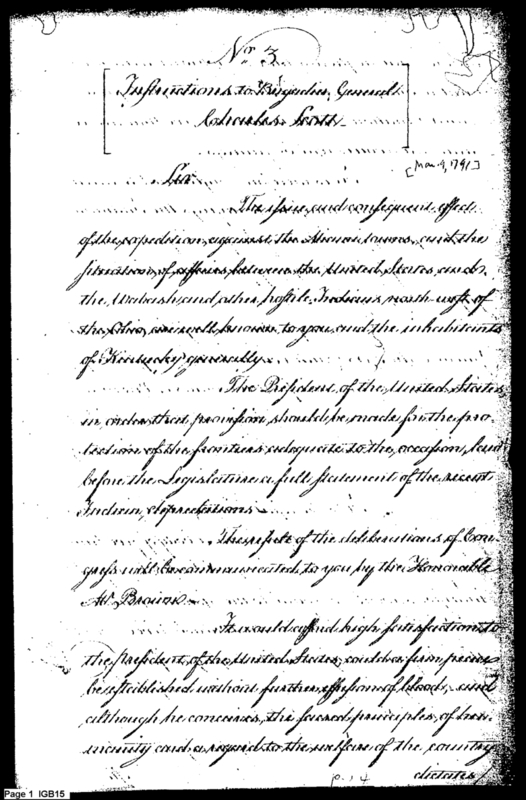 No 3
Instructions to Brigadier General
Charles Scott
[Mar. 9, 1791]
Sir
The issue and consequent effects
of the expedition against the Miami towns, and the
situation of affairs between the United States and
the Wabash and other hostile Indians north-west of
the Ohio, are well known to you, and the inhabitants
of Kentucky generally.
The President of the United States,
in order that provision should be made for the pro-
tection of the frontiers adequate to the occasion, laid
before the Legislature a full statement of the recent
Indian depredations.
The result of the deliberations of Con-
gress will be communicated to you by the Honorable
Mr Brown.
It would afford high satisfaction to
the President of the United States, could a firm peace
be established without further effusion of blood, and
although he conceives, the sacred principles of hu-
manity and a regard to the welfare of the country
dictates
p. 14
Page 1 IGB15